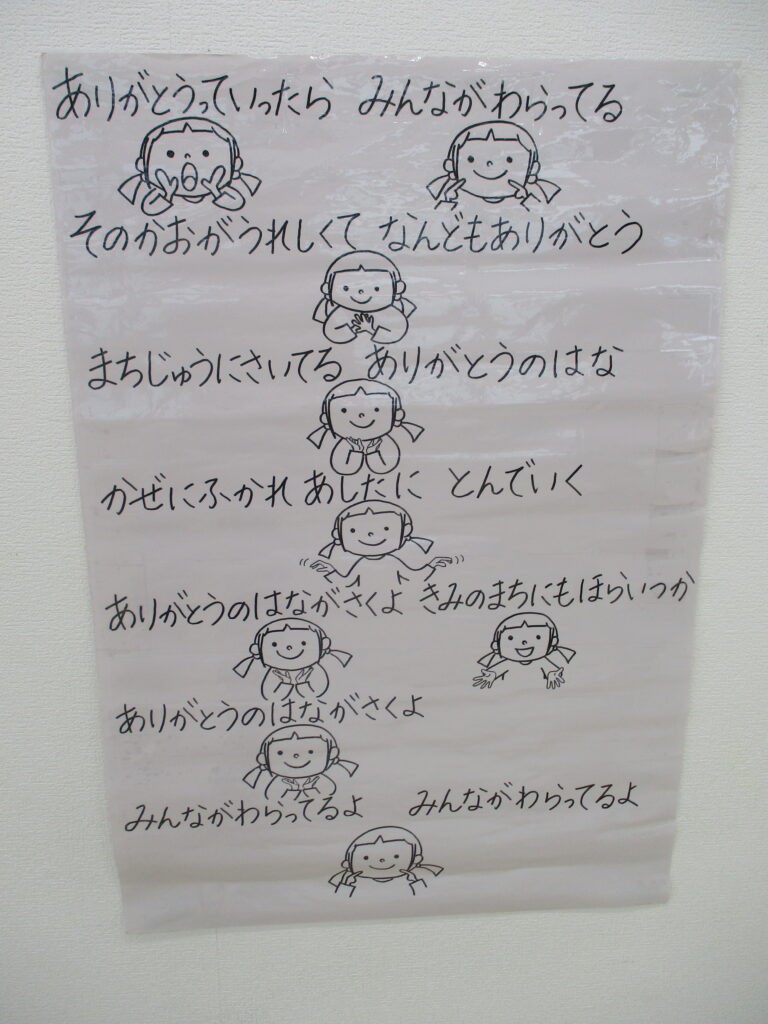 ありがとうっていったら みんながわらってる
そのかおがうれしくて なんどもありがとう
まちじゅうにさいてる ありがとうのはな
かぜにふかれ あしたに とんでいく
ありがとうのはながさくよ きみのまちにもほらいつか
ありがとうのはながさくよ
みんながわらってるよ みんながわらってるよ